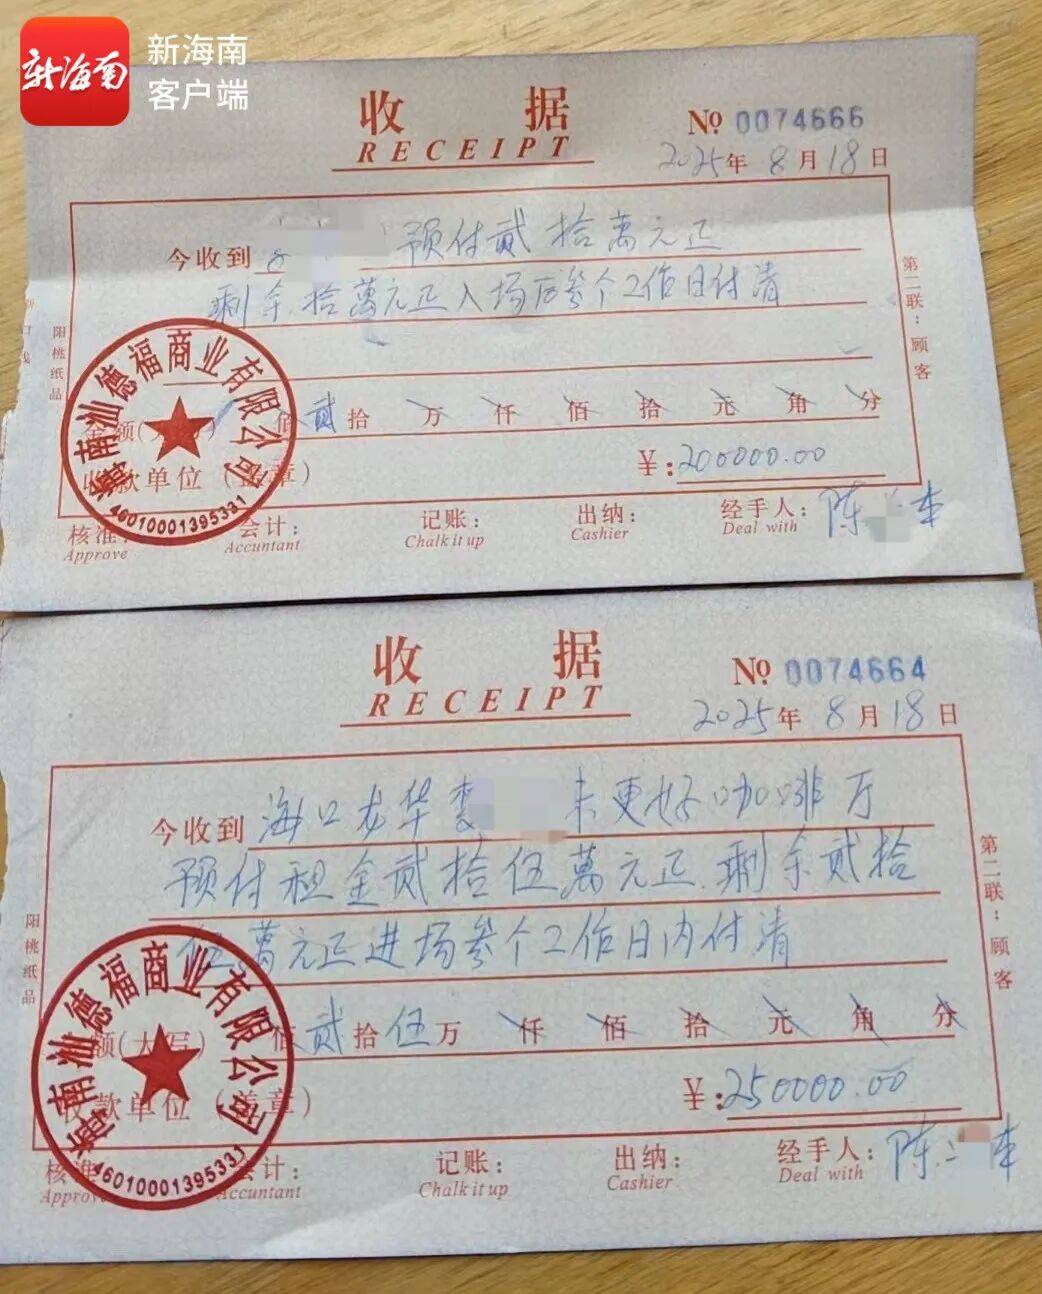 新海南
新海南
客户端
收 据
RECEIPT
№ 0074666
2025年 8月18日
今收到 预付贰拾萬元正
剩余拾萬元正入场后叁个工作日付清
第二联：顾客
阳桃纸品
金额(大写) 佰贰拾 万 仟 佰 拾 元 角 分
收款单位（盖章）
¥：200000.00
海南汕德福商业有限公司
4601000139533
核准： 会计： 记账： 出纳： 经手人：陈 本
Approve Accountant Chalk it up Cashier Deal with
收 据
RECEIPT
№ 0074664
2025年 8月18日
今收到 海口龙华 未更好咖啡厅
预付租金贰拾伍萬元正.剩余贰拾
伍萬元正进场叁个工作日内付清
第二联：顾客
阳桃纸品
金额(大写) 佰贰拾伍万 仟 佰 拾 元 角 分
收款单位（盖章）
¥：250000.00
海南汕德福商业有限公司
核准： 会计： 记账： 出纳： 经手人：陈 本
Approve Accountant Chalk it up Cashier Deal with